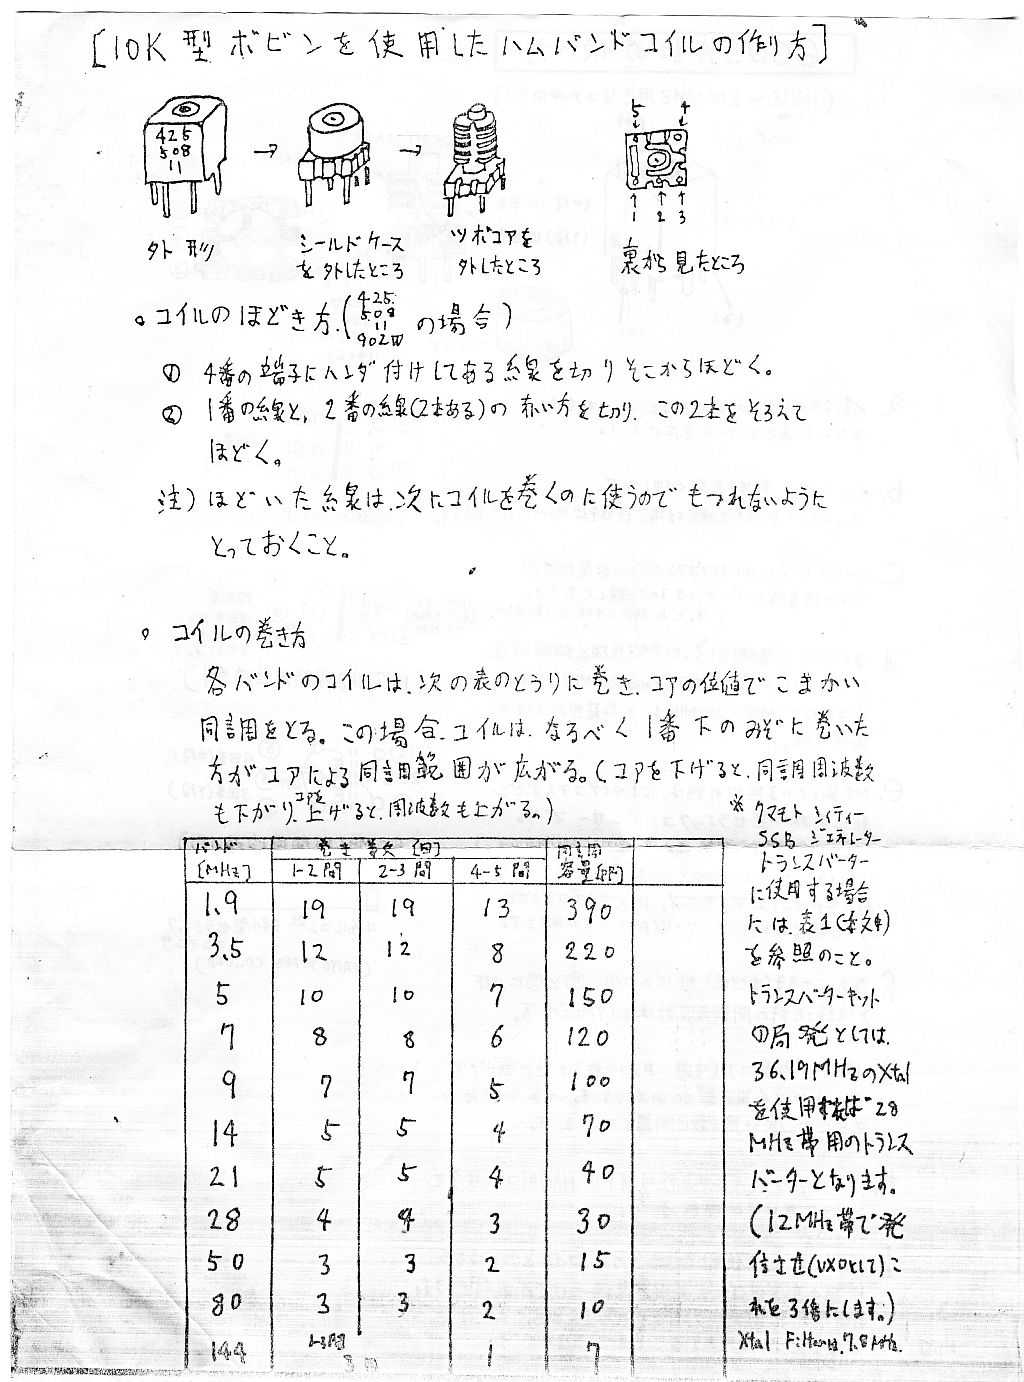 [10K型ボビンを使用したハムバンドコイルの作り方]
425
508
11
外形
シールドケース
を外したところ
ツボコアを
外したところ
5 4
1 2 3
裏から見たところ
○コイルのほどき方.(425 508 11 902の場合)
① 4番の端子にハンダ付けしてある線を切りそこからほどく。
② 1番の線と,2番の線(2本ある)の赤い方を切り、この2本をそろえて
ほどく。
注)ほどいた線は、次にコイルを巻くのに使うのでもつれないように
とっておくこと。
○コイルの巻き方
各バンドのコイルは、次の表のとうりに巻き、コアの位値でこまかい
同調をとる。この場合、コイルは、なるべく1番下のみぞに巻いた
方がコアによる同調範囲が広がる。(コアを下げると、同調周波数
も下がり、コアを上げると、周波数も上がる。)
バンド[MHz] 巻き数[回] 同調容量[PF]
1-2間 2-3間 4-5間
1.9 19 19 13 390
3.5 12 12 8 220
5 10 10 7 150
7 8 8 6 120
9 7 7 5 100
14 5 5 4 70
21 5 5 4 40
28 4 4 3 30
50 3 3 2 15
80 3 3 2 10
144 1-3間 1 7
※クマモトシィティー
SSBジェネレーター
トランスバーター
に使用する場合
には、表1(本文中)
を参照のこと。
トランスバーターキット
の局発としては、
36.19MHzのXtal
を使用すれば28
MHz帯用のトランス
バーターとなります。
(12MHz帯で発
信させ(VXOとして)こ
れを3倍にします。)
Xtal Filterは7.8MHz.